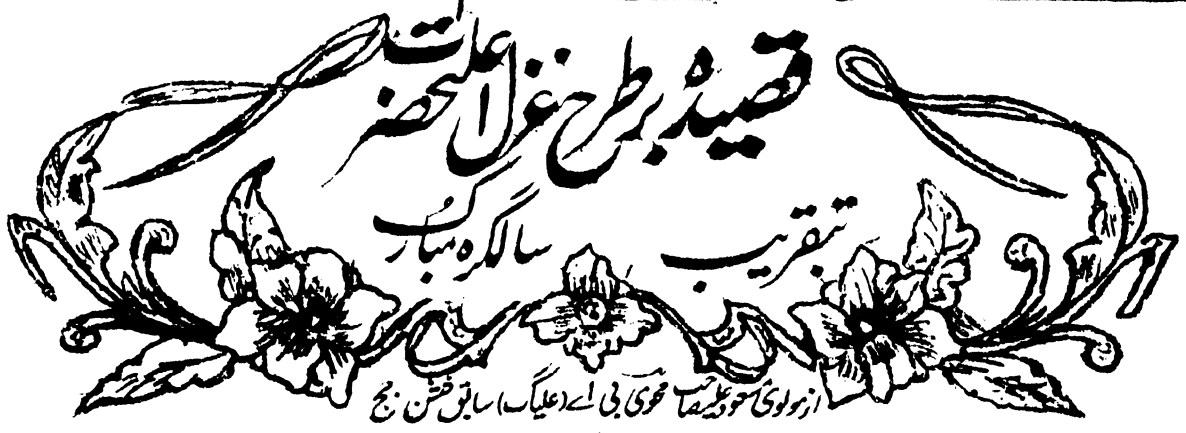 قصیدہ بر طرح غزل اعلیٰحضرت
بتقریب سالگرہ مبارک
از مولوی مسعود علی صاحب محوی بی اے (علیگ) سابق سشن جج